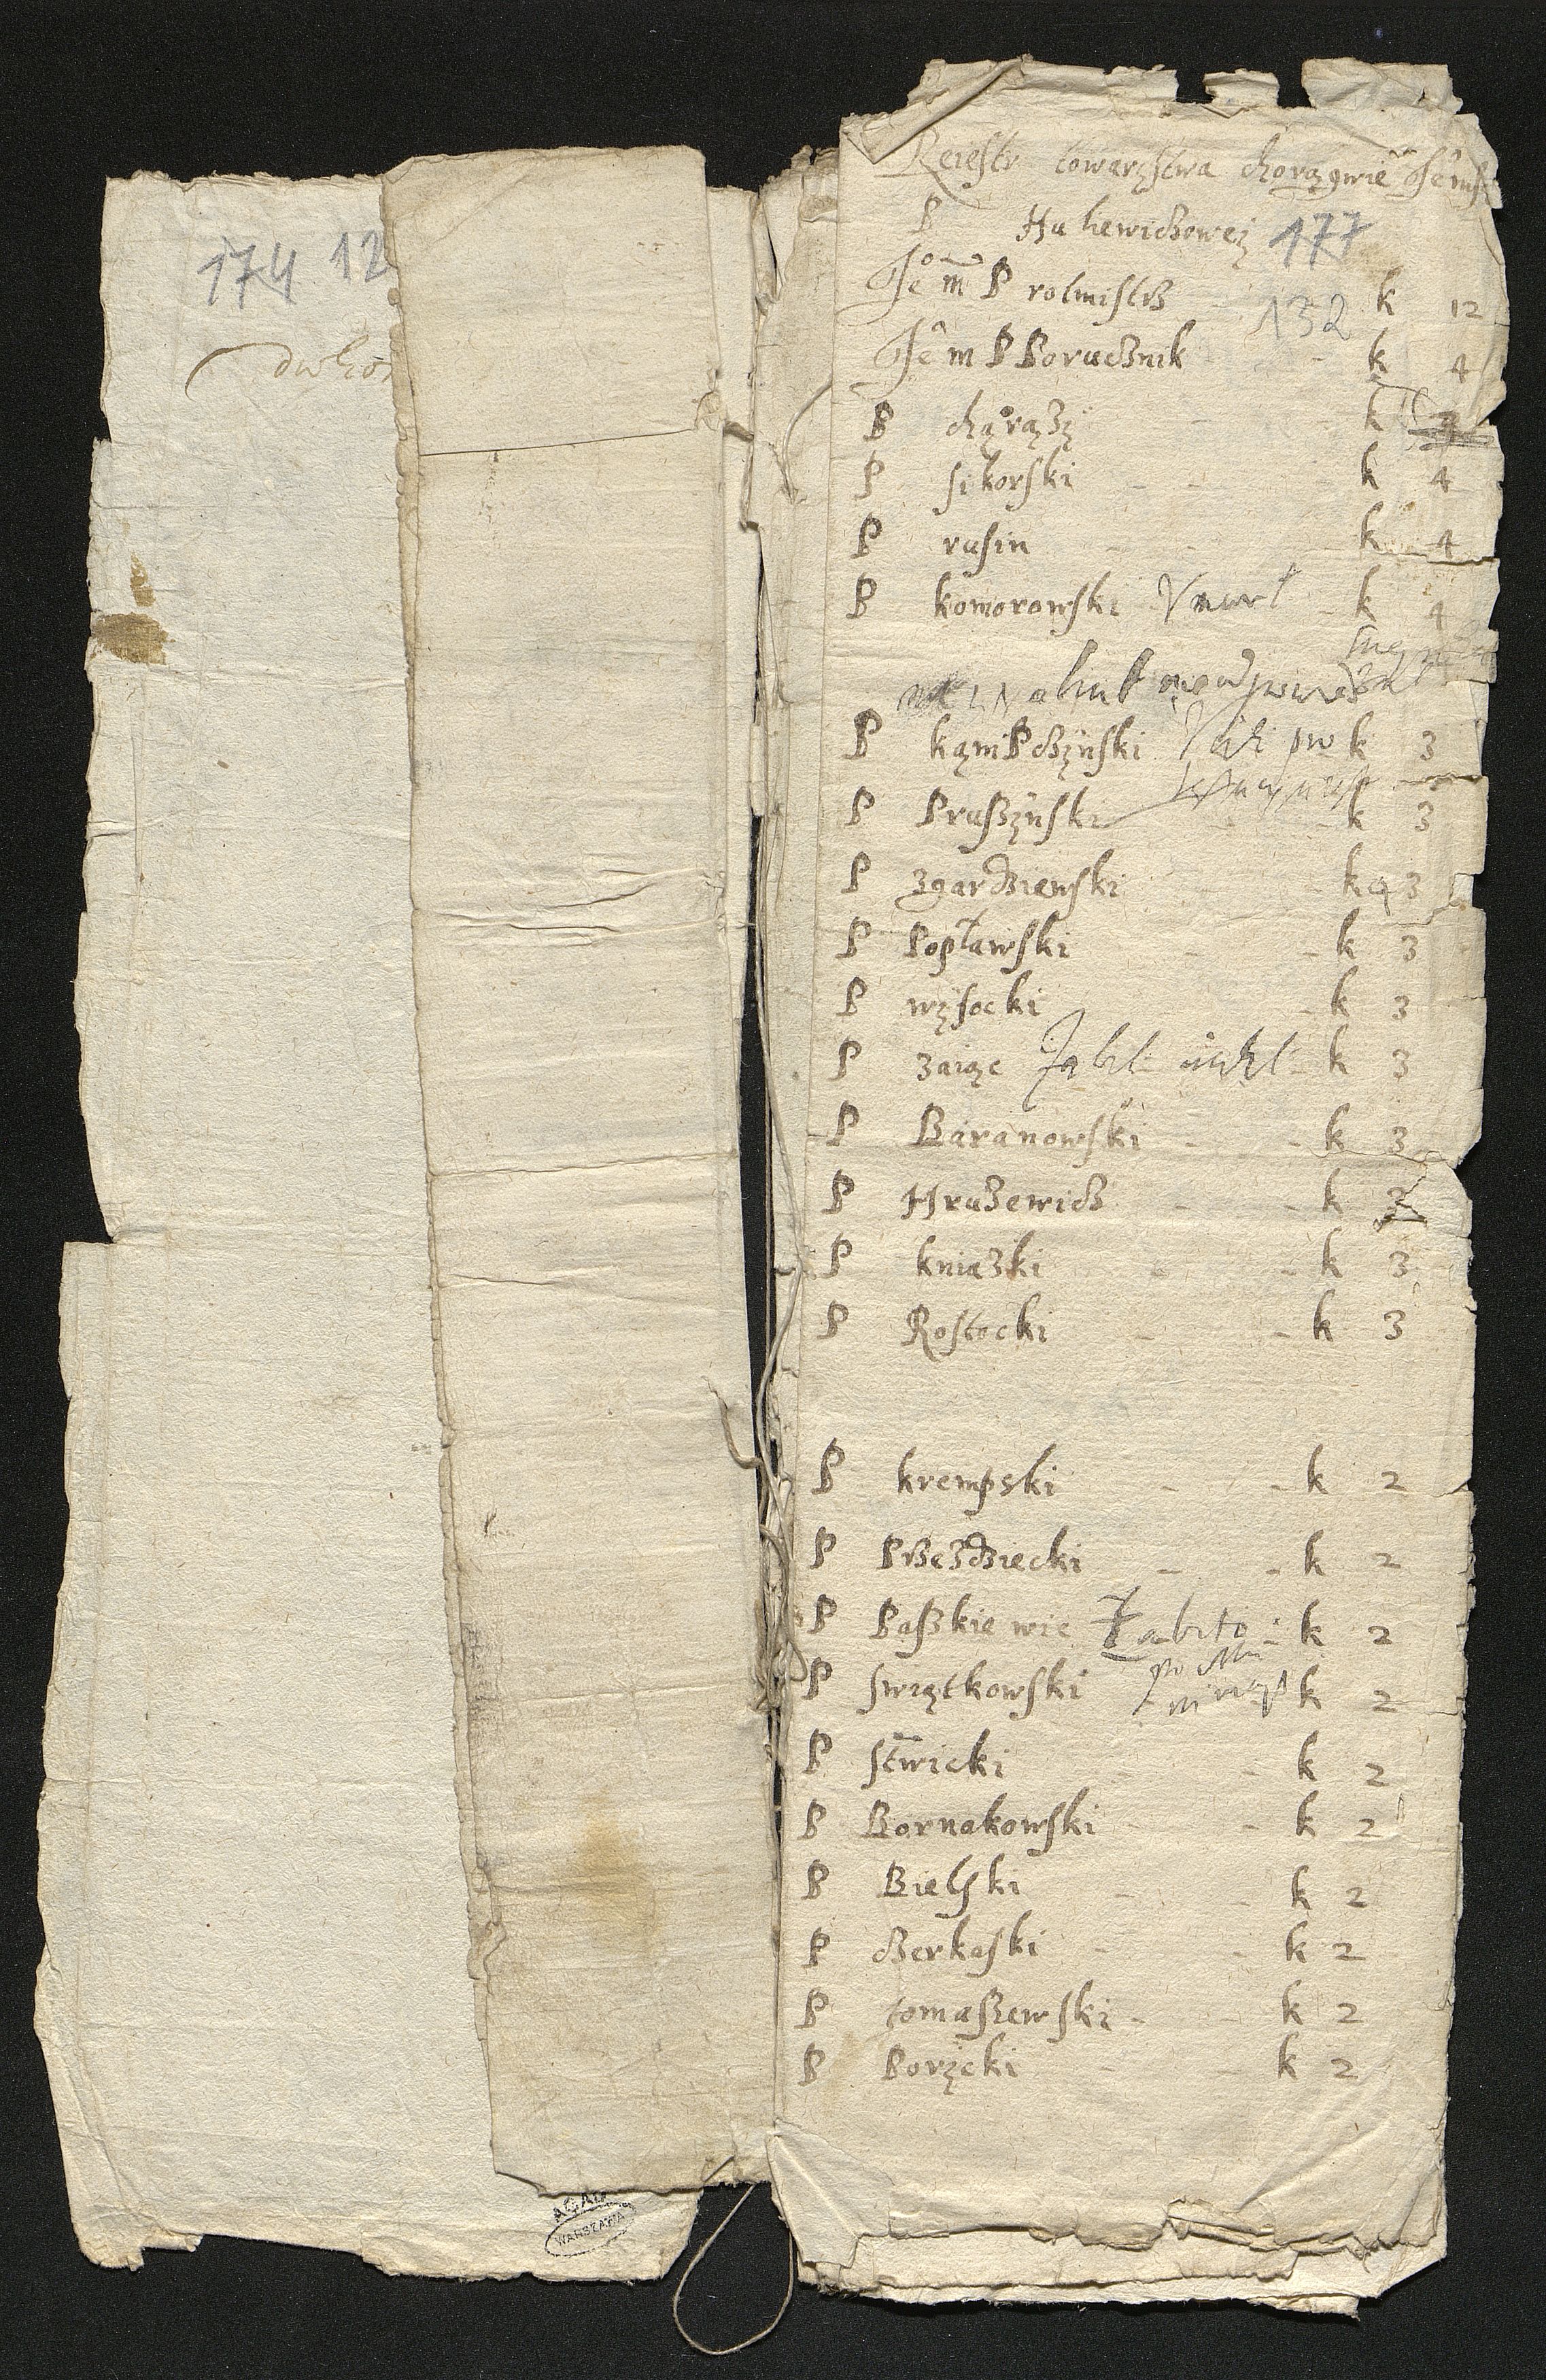 174 12
Reiestr towarzstwa chorągwie Je mś
P Huliewiczowey 177
Je m P rotmistrz 132 k 12
Je m P Porucznik k 4
P chąrąży k
P sikorski k 4
P rusin k 4
P komorowski Vmarł k 4
P kąmPczÿnski k 3
P Pruszÿnski k 3
P zgardzienski k 3
P Popławski k 3
P wysocki k 3
P zaiąc k 3
P Baranowski k 3
P Hruzewicz k 3
P kniazki k 3
P Rostocki k 3
P krempski k 2
P Przezdziecki k 2
P Paszkiewic Zabito k 2
P swiątkowski k 2
P stwicki k 2
P Bornakowski k 2
P Bielski k 2
P czerkaski k 2
P tomaszewski k 2
P Porycki k 2
AGAD
WARSZAWA